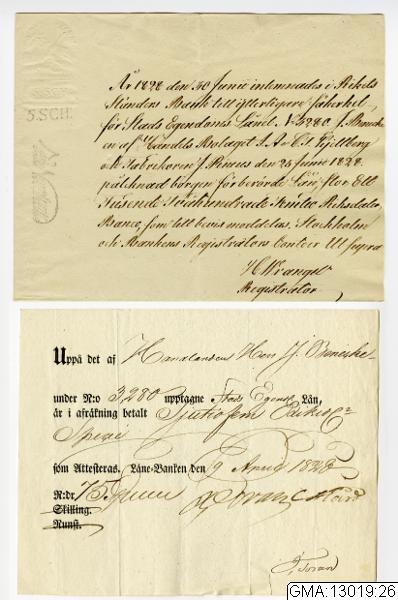 5.SCH.
År 1828 den 30 Junii intemnades i Rikets
Ständens Bank till ytterligare säkerhet,
för Stads Egendoms Länet N:o 3280 J. Bruncke
en af Handels Bolaget J. A. & C. F. Kjellberg
och Fabrikoren J. den 25 Junii 1828
påtecknad borgen för berörde Lån, stor Ett
Tusende Banco, som till bevis meddelas. Stockholm
och Bankens Registrators Contoir Ut supra
H Wrangel
Registrator
Uppå det af Handlanden Herr J. Bruncke
under N:o 3280 upptagne Stads Egend. Lån,
är i afräkning betalt Sjutiofem Riksd.
Specie
som Attesteras. Låne-Banken den 9 April 1828
R:dr. 75 Specie
Skilling.
Runst.
GMA:13019:26